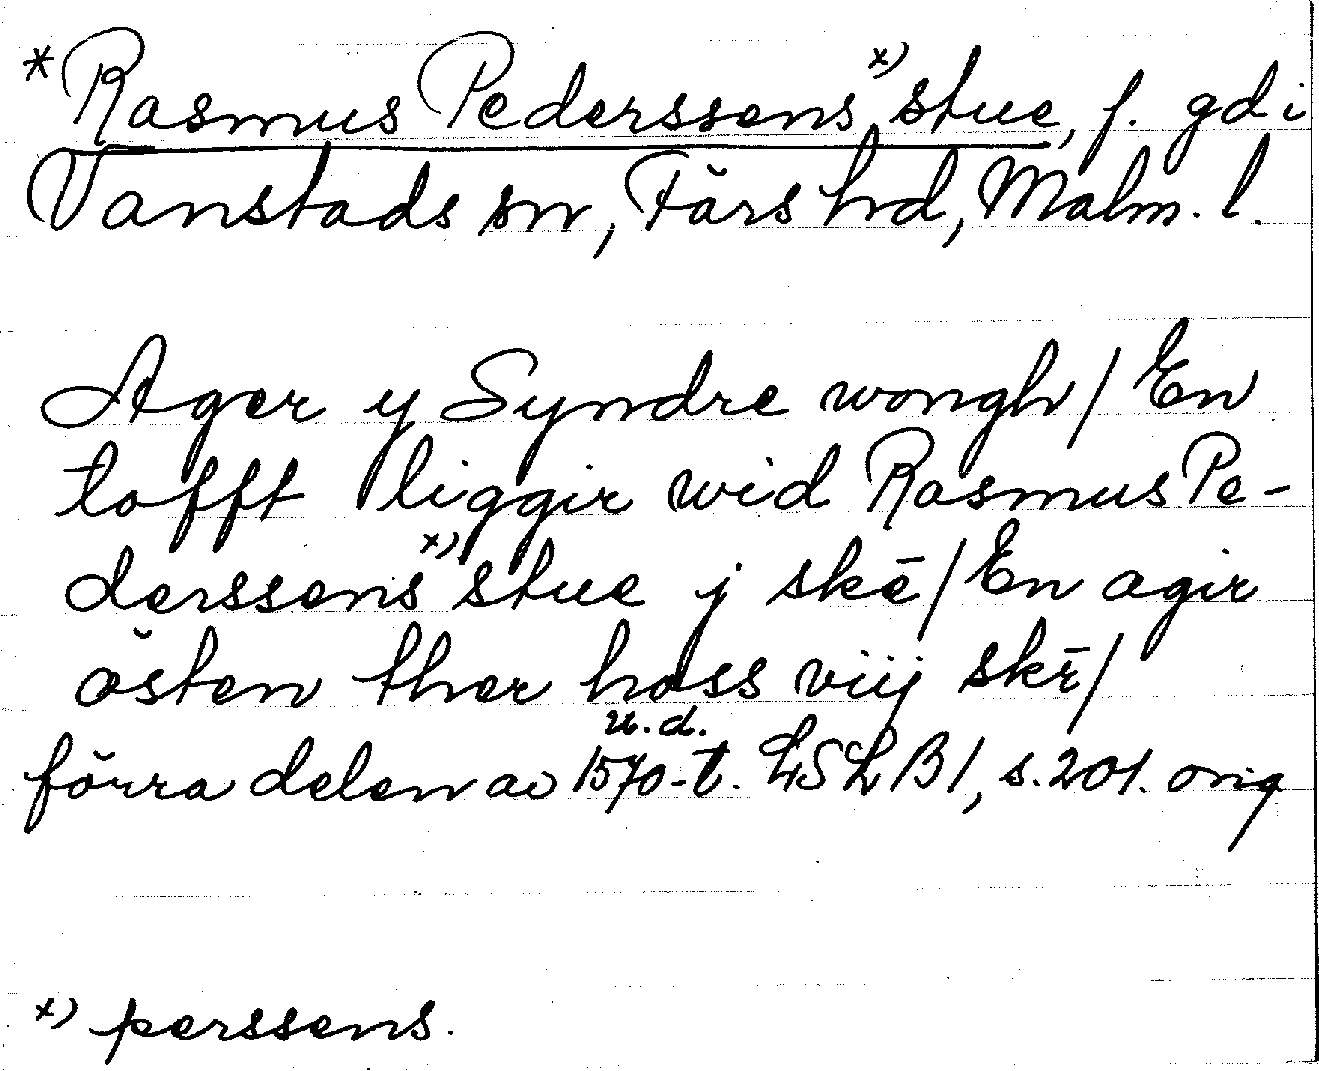 *Rasmus Pederssens x) stue, f. gd i
Vanstads sn, Färs hd, Malm. l.
Ager y Syndre wongh / En
tofft liggir wid Rasmus Pe-
derssens x) stue j skē / En agir
östen ther hoss viij skē /
förra delen av 1570-t. u.d. LSLB 1, s. 201. orig
x) perssens.